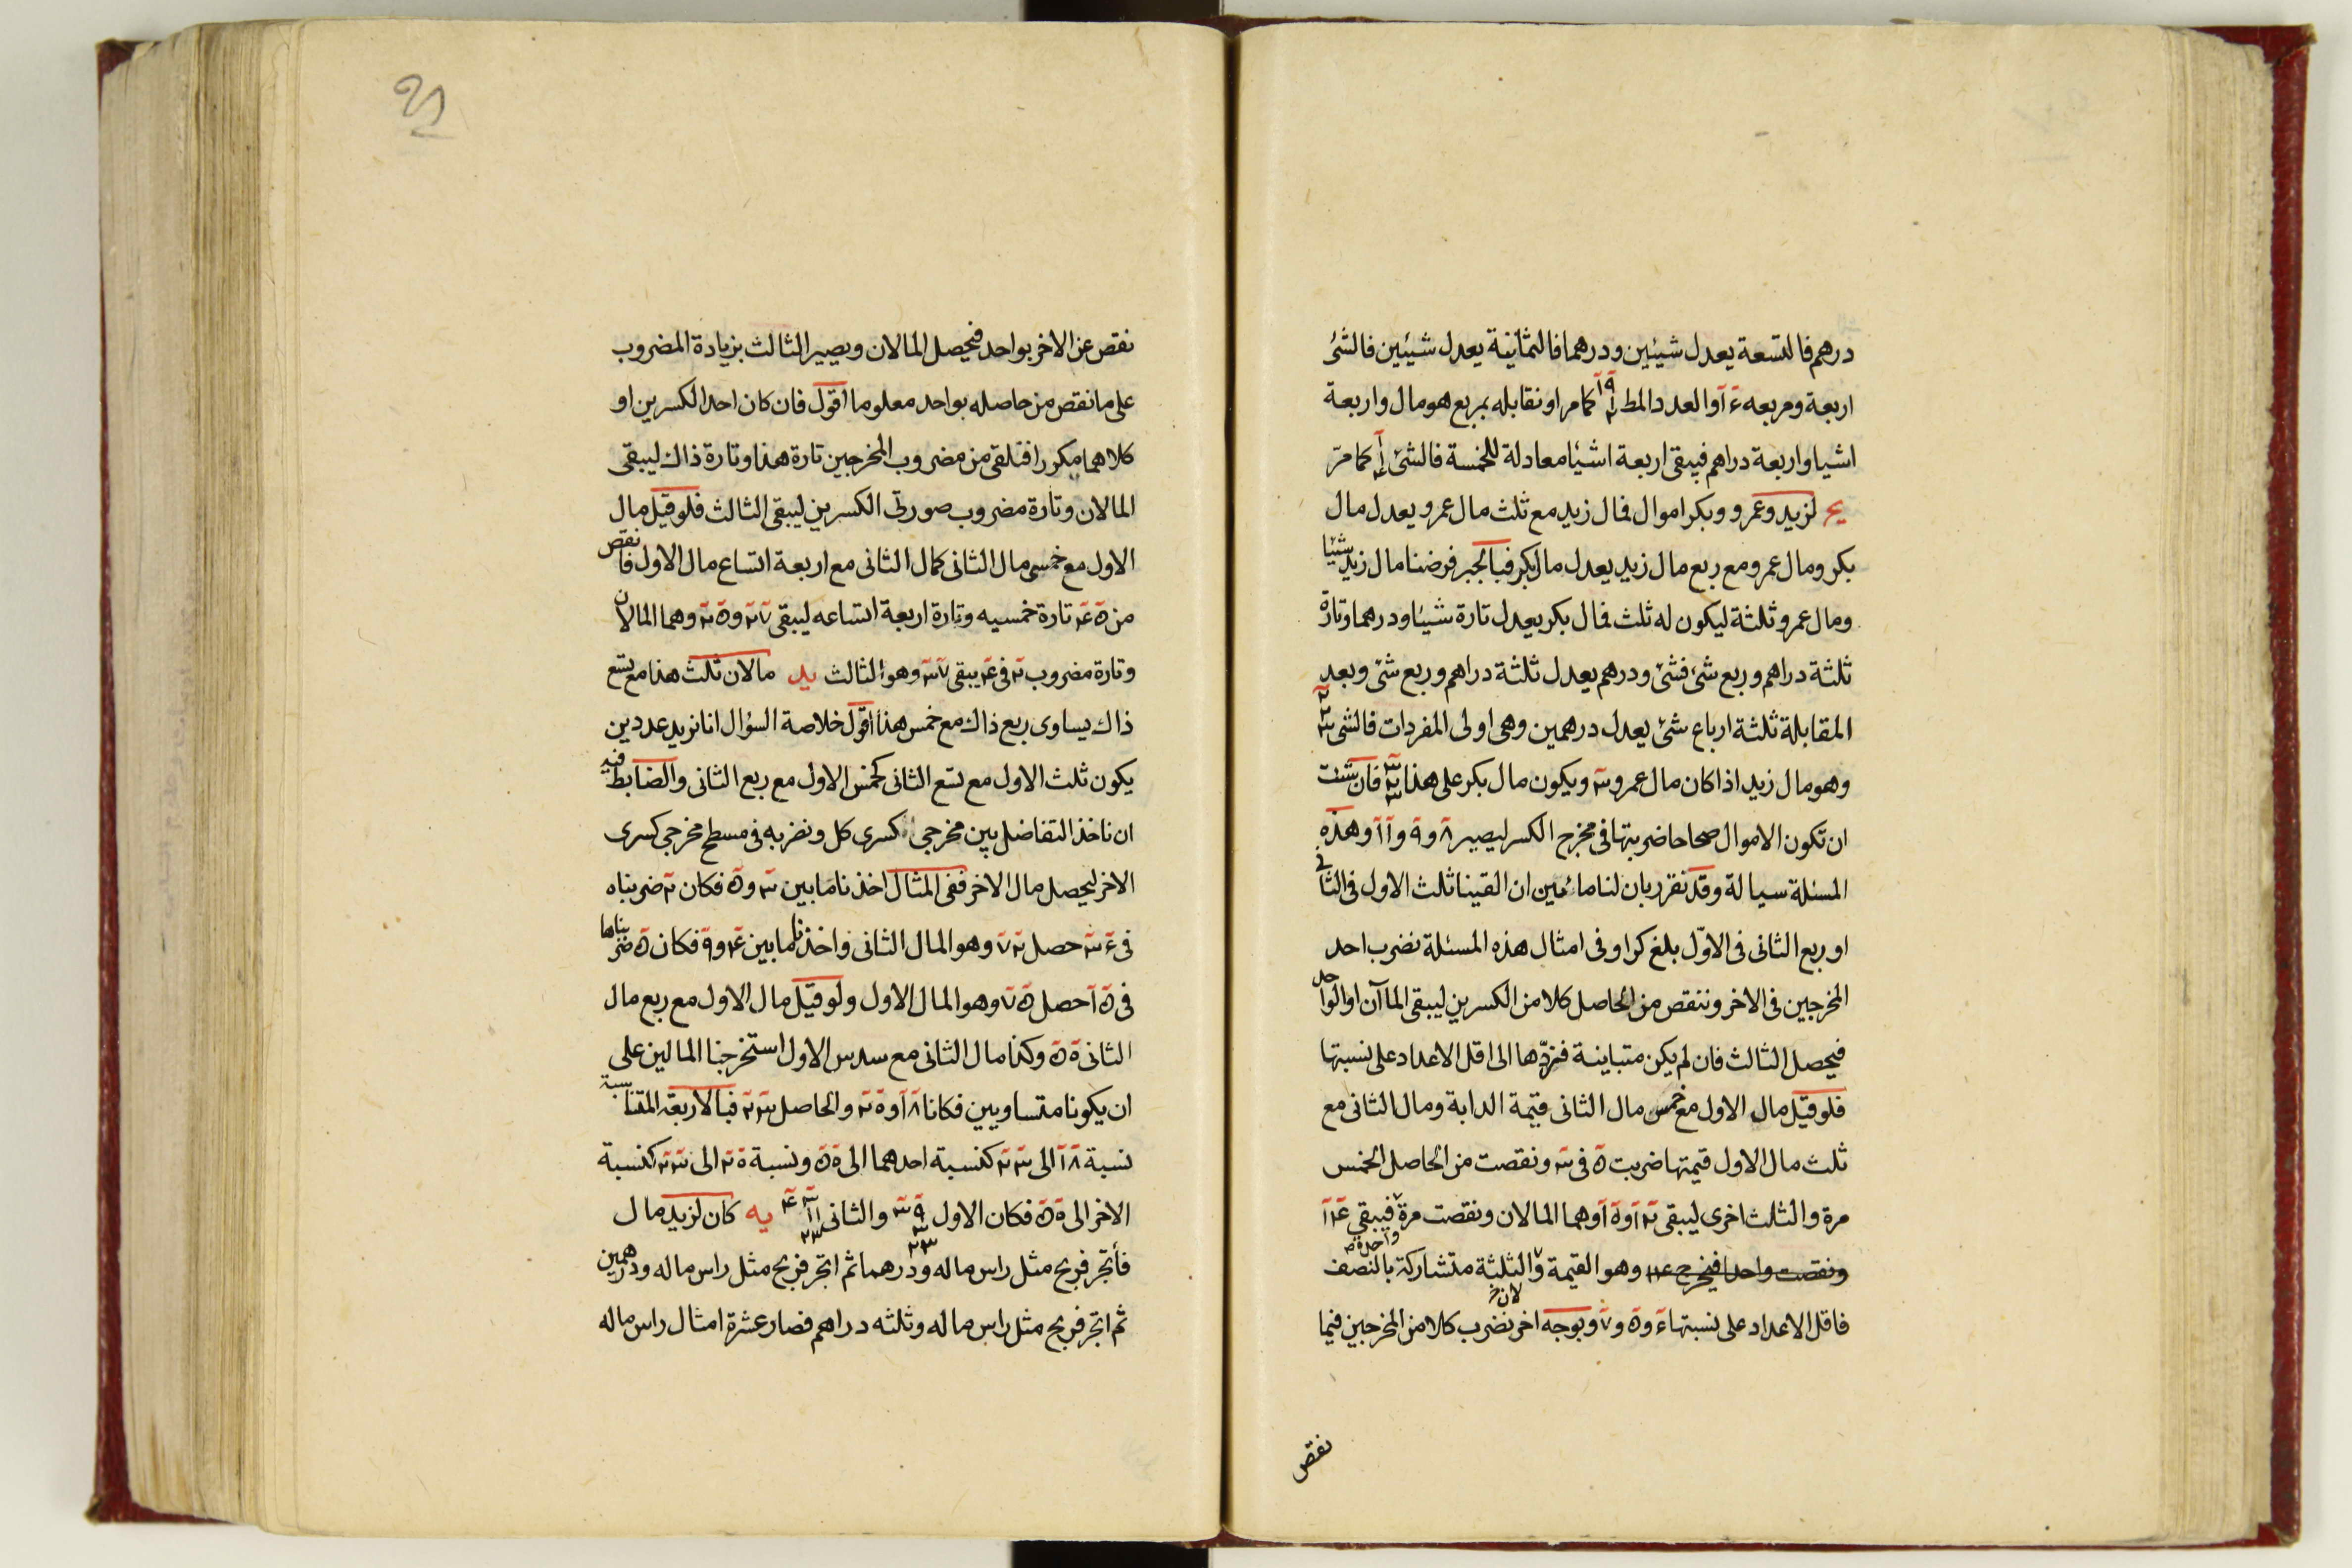 درهم فالتسعة يعدل شيئين ودرهما فالثمانية يعدل شيئين فالشئ
اربعة ومربعه ۱۶ والعدد المط كما مر او نقابله بمربع هو مال واربعة
اشيا واربعة دراهم فيبقى اربعة اشيا معادلة للخمسة فالشئ كما مرّ
يج لزيد وعمرو وبكر اموال فمال زيد مع ثلث مال عمرو يعدل مال
بكر ومال عمرو مع ربع مال زيد يعدل مال بكر فبالجبر فرضنا مال زيد شيئا
ومال عمرو ثلثة ليكون له ثلث فمال بكر يعدل تارة شيئا ودرهما وتارة
ثلثة دراهم وربع شئ فشئ ودرهم يعدل ثلثة دراهم وربع شئ وبعد
المقابلة ثلثة ارباع شئ يعدل درهمين وهى اولى المفردات فالشئ
وهو مال زيد اذا كان مال عمرو ۳ ويكون مال بكر على هذا فان شئت
ان تكون الاموال صحاحا ضربتها فى مخرج الكسر ليصير ۸ و ۹ و ۱۱ وهذه
المسئلة سيالة وقد نقرر بان لنا مائين ان القينا ثلث الاول فى الثانى
او ربع الثانى فى الاوّل بلغ كرا وفى امثال هذه المسئلة نضرب احد
المخرجين فى الاخر وننقص من الحاصل كلا من الكسرين ليبقى الماآن او الواحد
فيحصل الثالث فان لم يكن متباينة فنردّها الى اقل الاعداد على نسبتها
فلو قيل مال الاول مع خمس مال الثانى قيمة الدابة ومال الثانى مع
ثلث مال الاول قيمتها ضربت ۵ فى ۳ ونقصت من الحاصل الخمس
مرة والثلث اخرى ليبقى ۱۲ و ۱۰ وهما المالان ونقصت مرة واحدة فيبقى ۱۴
ونقصت واحدا فيخرج ۱۴ وهو القيمة والثلثة متشاركة بالنصف
فاقل الاعداد على نسبتها ۶ و ۵ و ۷ وبوجه اخر نضرب كلا من المخرجين فيما
نقص
نقص عن الاخر بواحد فيحصل المالان ويصير الثالث بزيادة المضروب
على ما نقص من حاصله بواحد معلوما اقول فان كان احد الكسرين او
كلاهما مكررا فتلقى من مضروب المخرجين تارة هذا وتارة ذاك ليبقى
المالان وتارة مضروب صورتى الكسرين ليبقى الثالث فلو قيل مال
الاول مع خمسى مال الثانى كمال الثانى مع اربعة اتساع مال الاول فانقص
من ۴۵ تارة خمسيه وتارة اربعة اتساعه ليبقى ۲۷ و ۲۵ وهما المالان
وتارة مضروب ۲ فى ۴ يبقى ۳۷ وهو الثالث يد مالان ثلث هذا مع تسع
ذاك يساوى ربع ذاك مع خمس هذا اقول خلاصة السؤال انا نريد عددين
يكون ثلث الاول مع تسع الثانى كخمس الاول مع ربع الثانى والضابط فيه
ان ناخذ التفاضل بين مخرجى كسرى كل ونضربه فى مسطح مخرجى كسرى
الاخر ليحصل مال الاخر ففى المثال اخذنا ما بين ۳ و ۵ فكان ۲ ضربناه
فى ۳۶ حصل ۷۲ وهو المال الثانى واخذنا ما بين ۴ و ۹ فكان ۵ ضربناها
فى ۱۵ حصل ۷۵ وهو المال الاول ولو قيل مال الاول مع ربع مال
الثانى ۵۵ وكذا مال الثانى مع سدس الاول استخرجنا المالين على
ان يكونا متساويين فكانا ۱۸ و ۲۰ والحاصل ۲۳ فبالاربعة المتناسبة
نسبة ۱۸ الى ۲۳ كنسبة احدهما الى ۵۵ ونسبة ۲۰ الى ۲۳ كنسبة
الاخر الى ۵۵ فكان الاول والثانى يه كان لزيد مال
فأتجر فربح مثل راس ماله ودرهما ثم اتجر فربح مثل راس ماله ودرهمين
ثم اتجر فربح مثل راس ماله وثلثه دراهم فصار عشرة امثال راس ماله